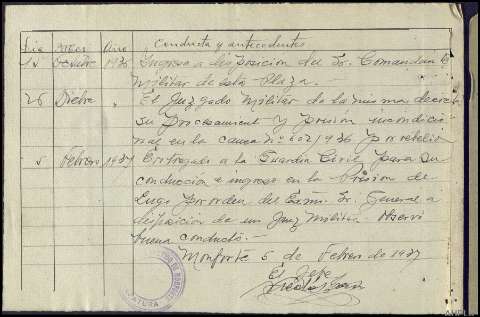 Dia Mes Año Conducta y antecedentes
15 Octubre 1936 Ingresó a disposición del Sr. Comandante
Militar de esta Plaza.
26 Dicbre " El Juzgado Militar de la misma decreta
su Procesamient y Prision incondicio
nal en la causa nº 602/936 por rebelión
5 Febrero 1937 Entregado a la Guardia Civil para su
conducción e ingreso en la Prisión de
Lugo por orden del Excmo. Sr. General a
disposición de un Juez Militar. Observó
buena conducta.-
Monforte 5 de Febrero de 1937
El Jefe
JEFATURA